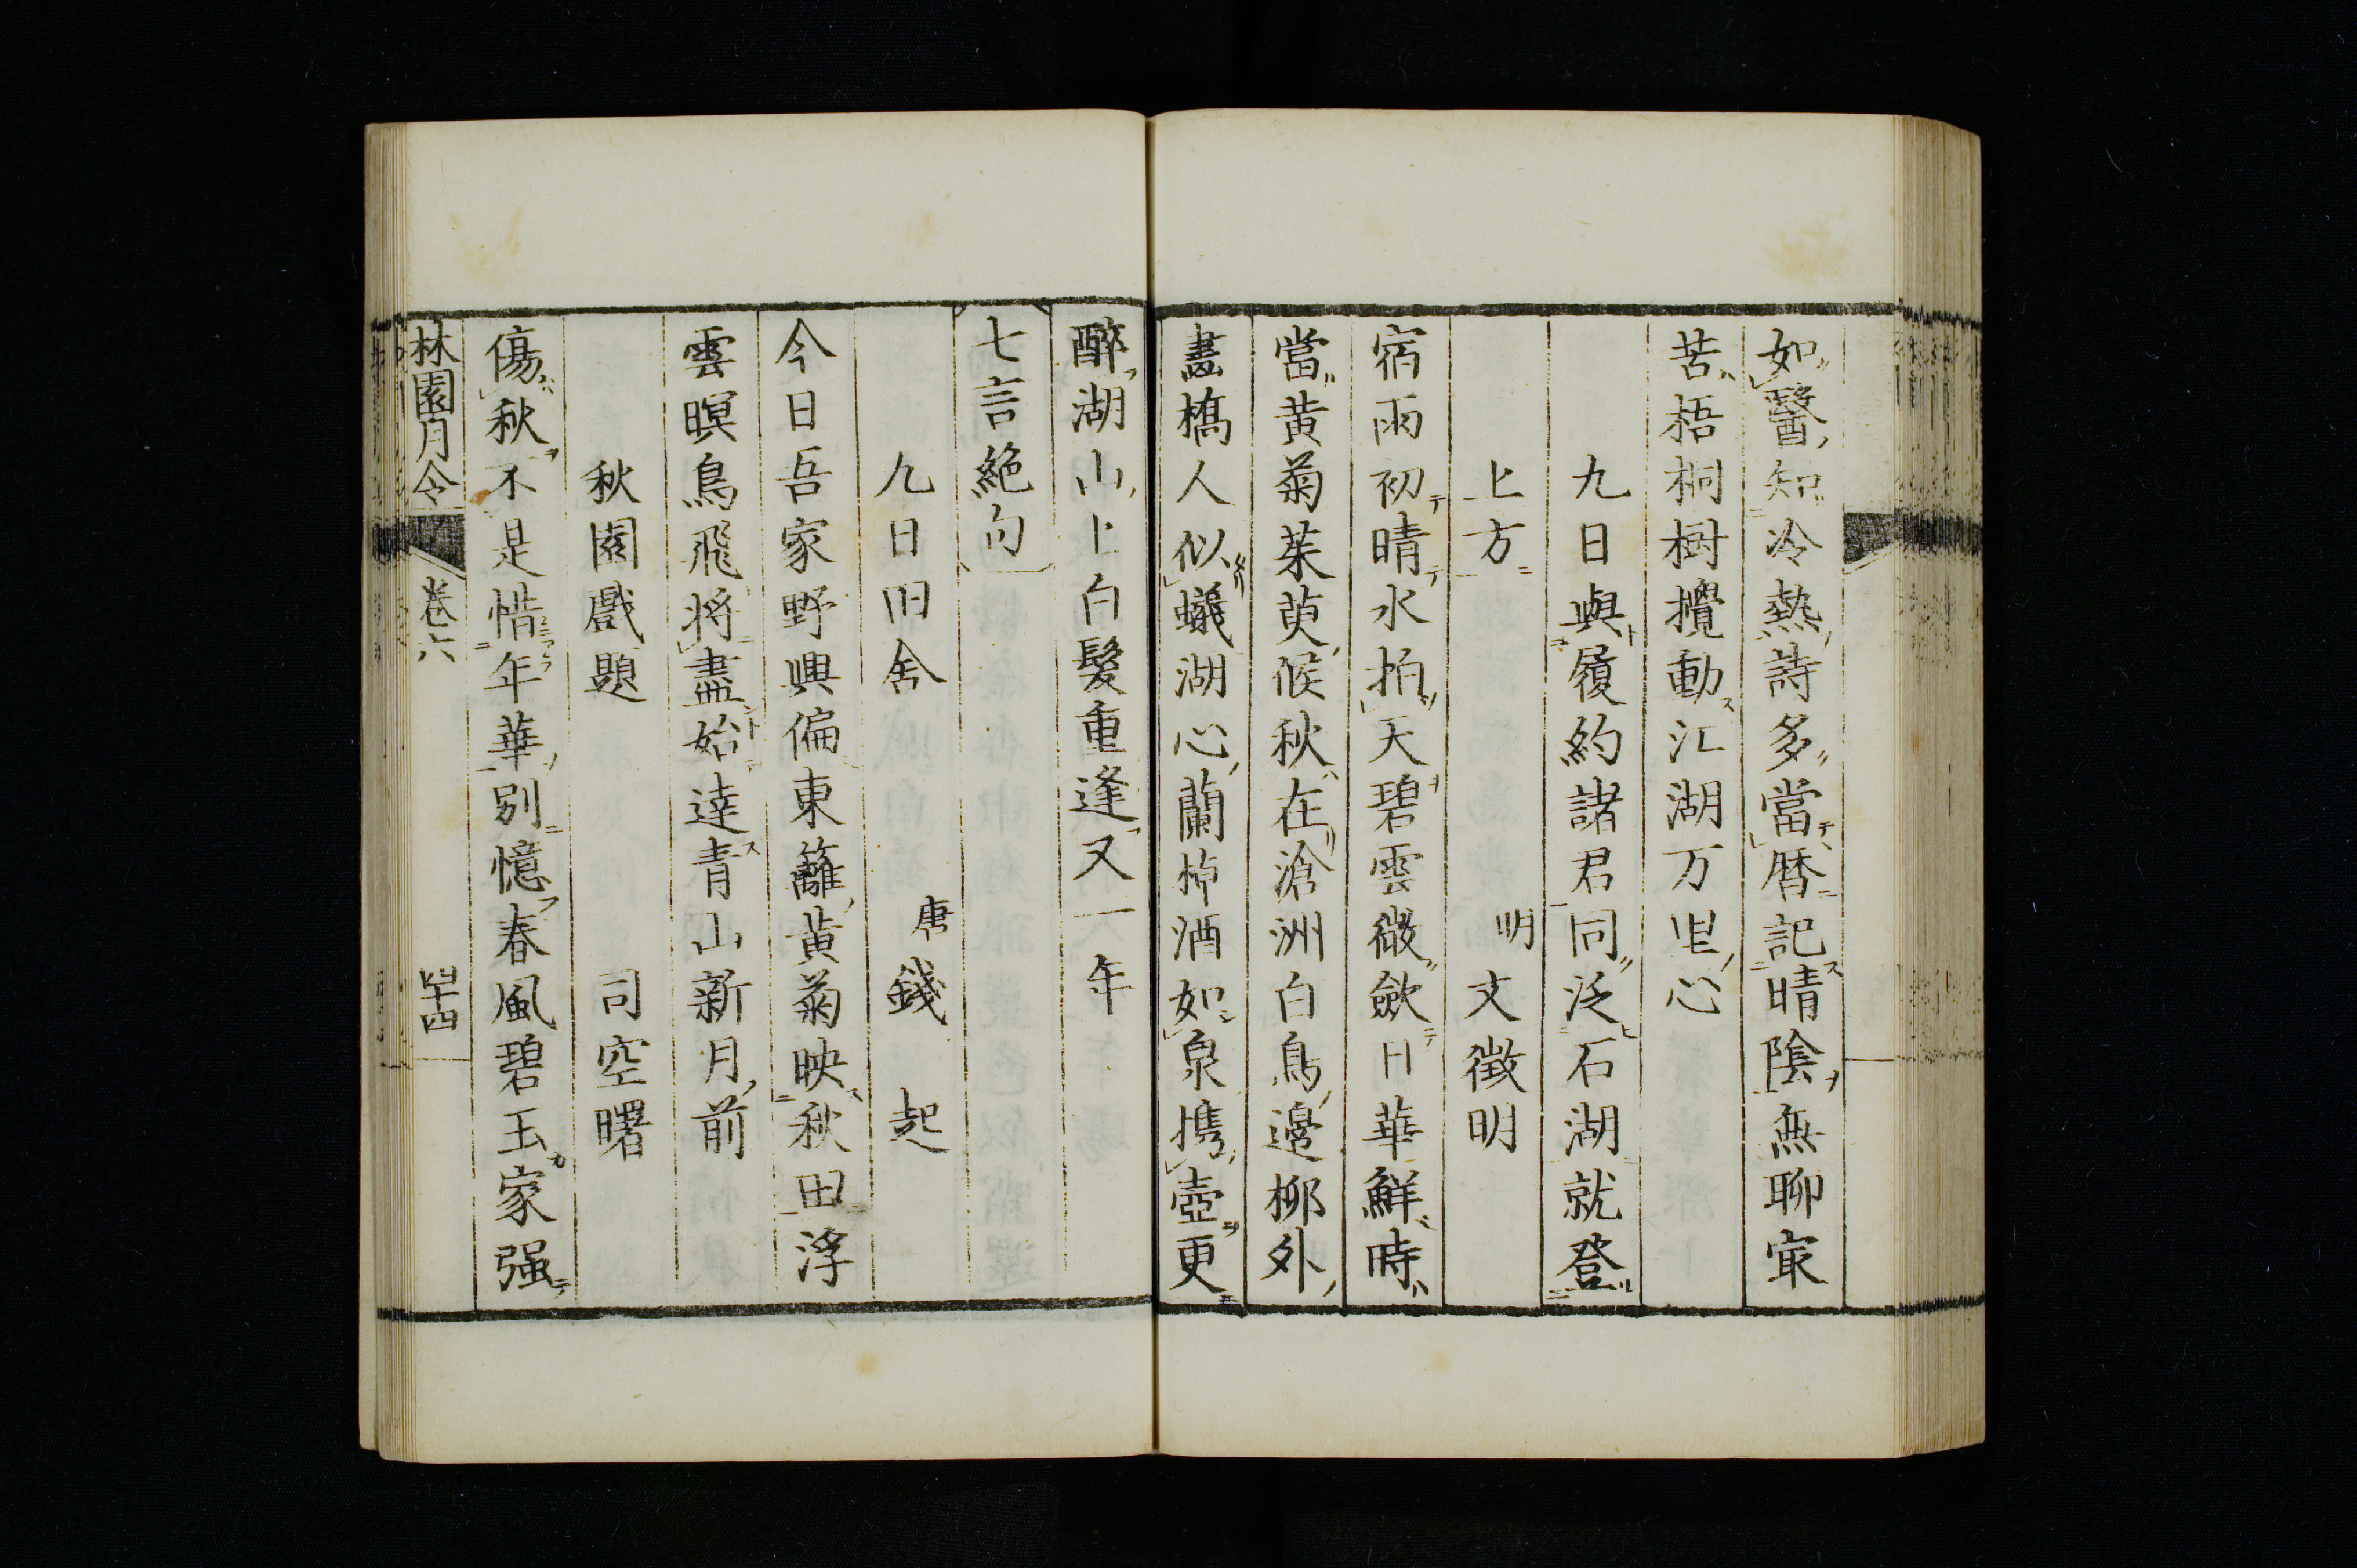 如醫知冷熱詩多當暦記晴陰無聊㝡
苦梧桐樹攪動江湖万里心
九日與履約諸君同泛石湖就登
上方　明　文徴明
宿雨初晴水拍天碧雲微歛日華鮮時
當黄菊茱萸候秋在滄洲白鳥邊栁外
畫橋人似蟻湖心蘭棹酒如泉携壺更
醉湖山上白髮重逢又一年
七言絶句
九日田舎　唐　錢起
今日吾家野興偏東籬黄菊映秋田浮
雲暝鳥飛将盡始達青山新月前
秋園戯題　司空曙
傷秋不是惜年華別憶春風碧玉家强
林園月令　卷六　四十四